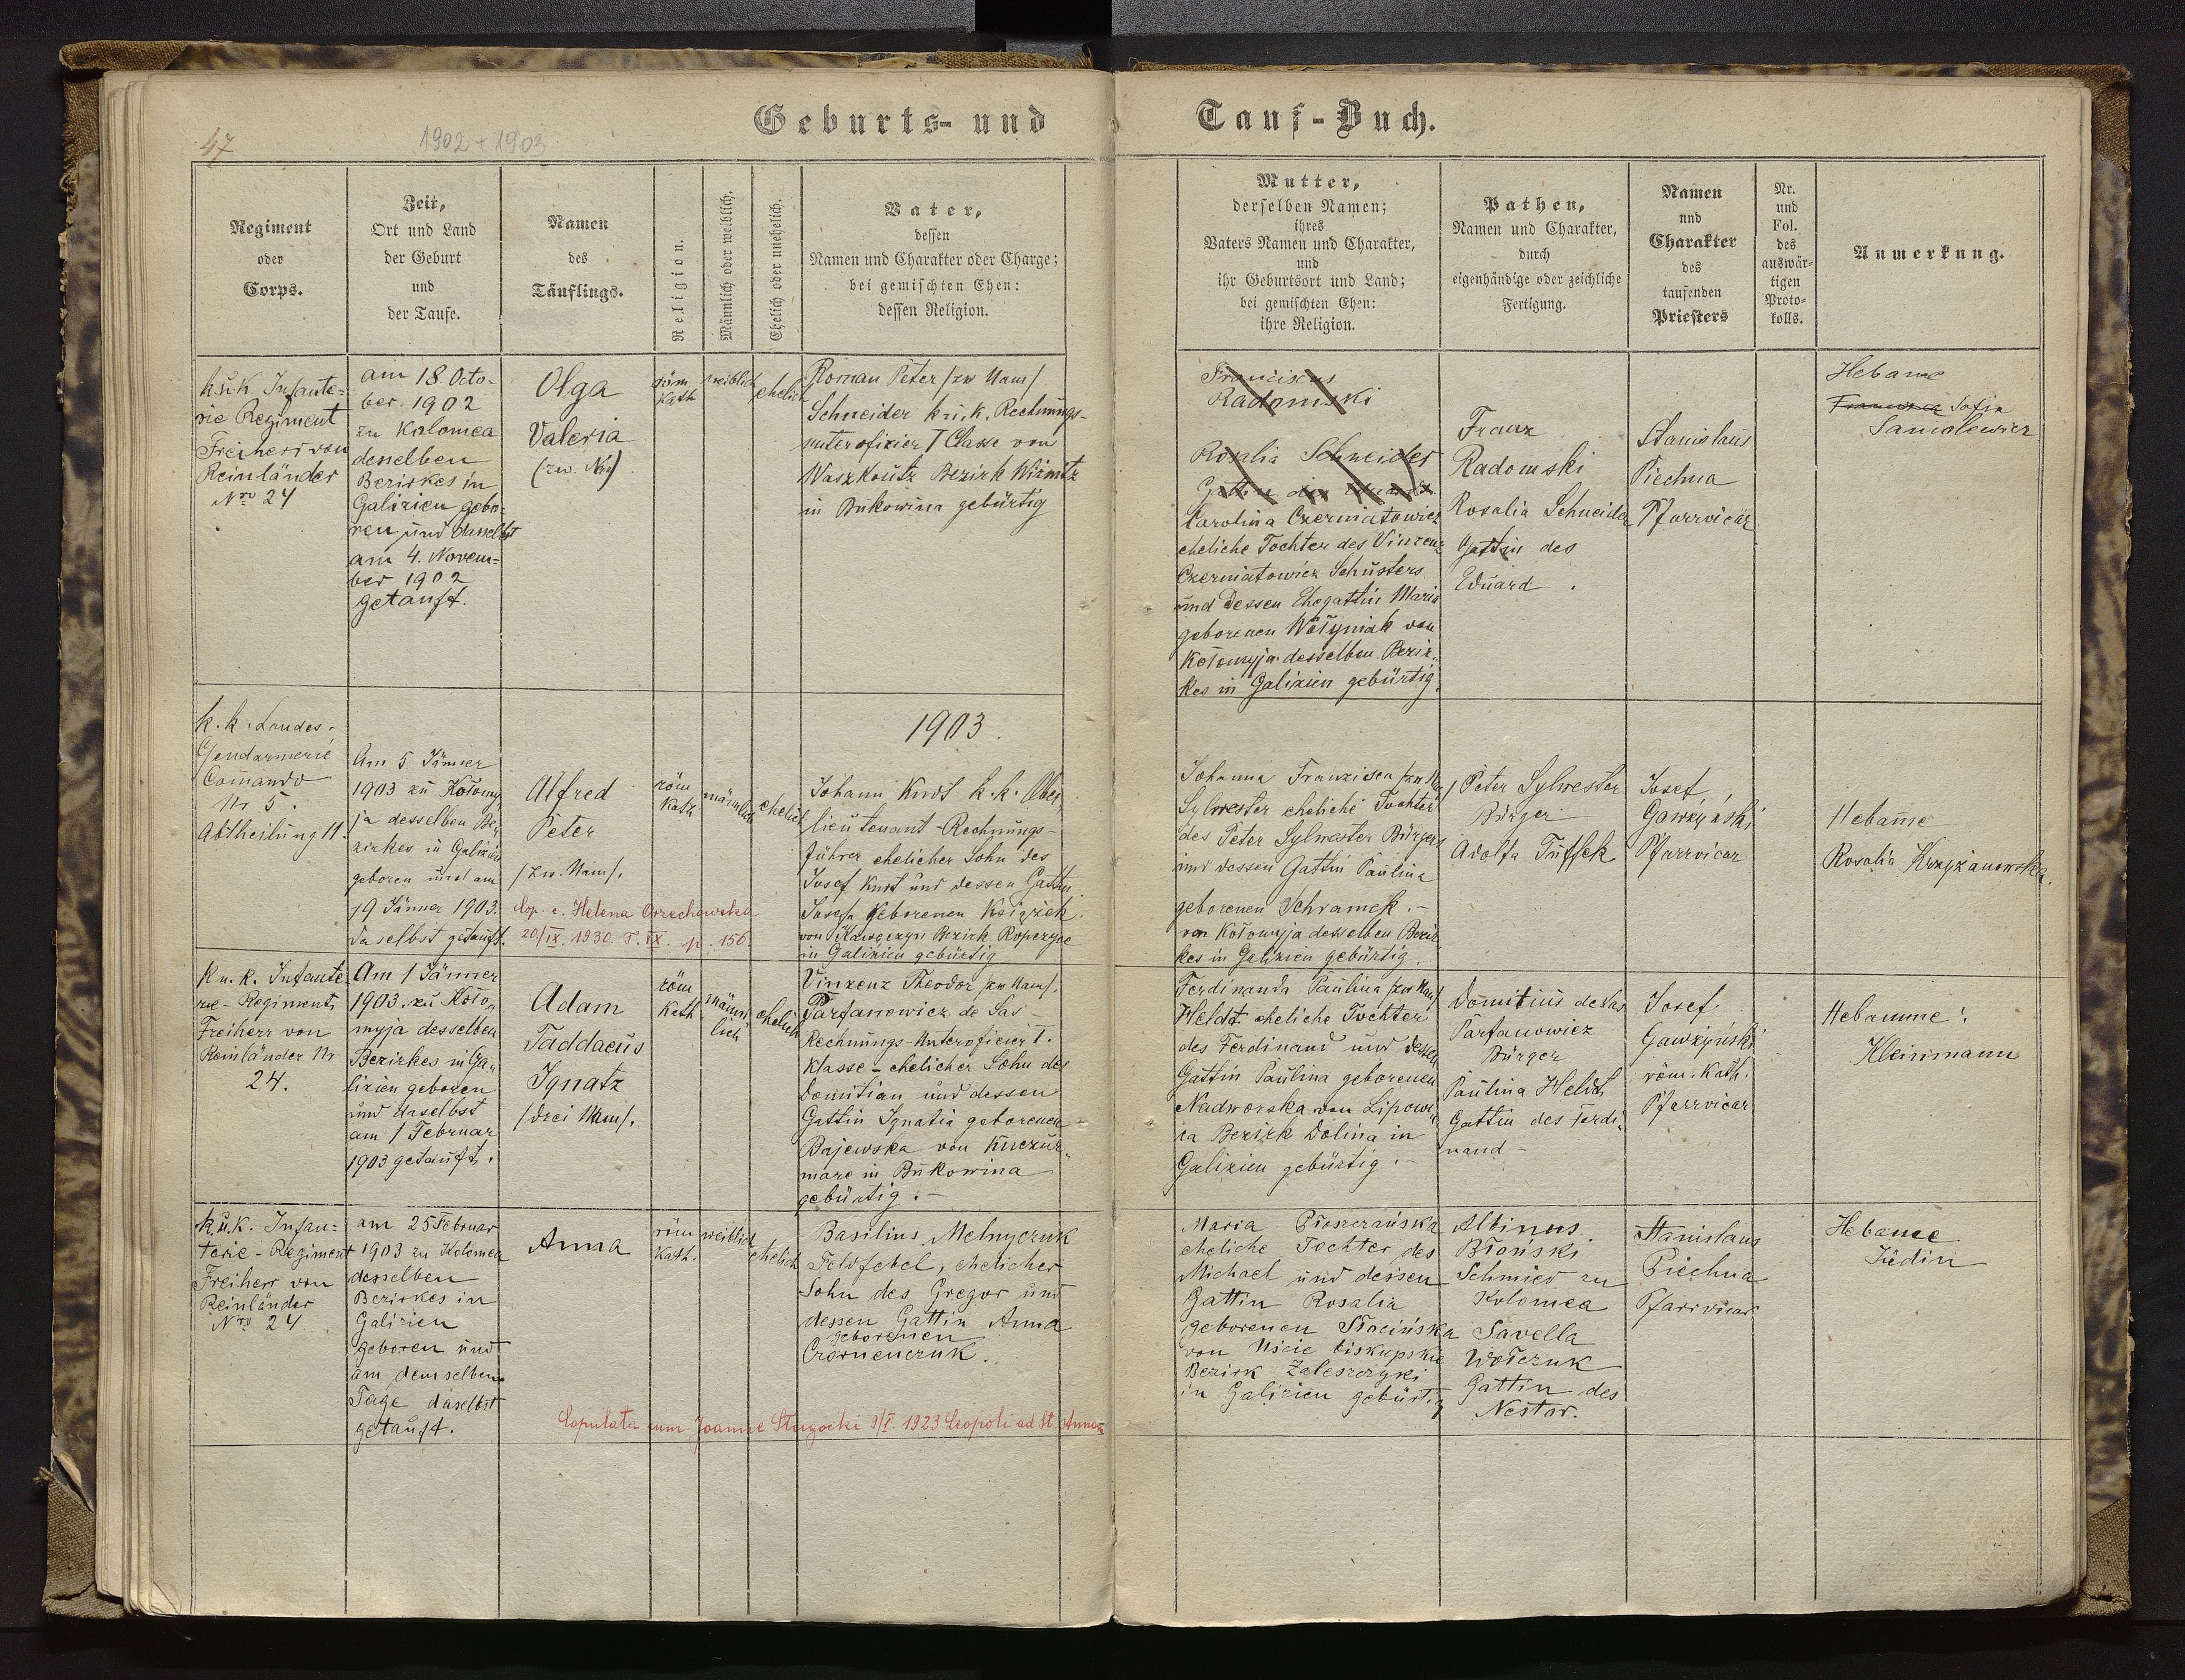 Geburts- und Tauf-Buch.
47
1902 + 1903
Regiment
oder
Corps.
Zeit,
Ort und Land
der Geburt
und
der Taufe.
Namen
des
Täuflings.
Religion.
Männlich oder weiblich.
Ehelich oder unehelich.
Vater,
dessen
Namen und Charakter oder Charge;
bei gemischten Ehen:
dessen Religion.
Mutter,
derselben Namen;
ihres
Vaters Namen und Charakter,
und
ihr Geburtsort und Land;
bei gemischten Ehen:
ihre Religion.
Pathen,
Namen und Charakter,
durch
eigenhändige oder zeichliche
Fertigung.
Namen
und
Charakter
des
taufenden
Priesters
Nr.
und
Fol.
des
auswär-
tigen
Proto-
kolls.
Anmerkung.
k.u.K. Infante=
rie Regiment
Freiherr von
Reinländer
Nro 24
am 18. Octo-
ber. 1902
zu Kolomea
desselben
Bezirkes in
Galizien gebo-
ren und daselbst
am 4. Novem-
ber 1902
getauft.
Olga
Valeria
(zw. Nm)
röm
Kath
weiblich
ehelich
Roman Peter /zw Nam/
Schneider k.u.k. Rechnungs-
unterofizier I Classe von
Waszkoutz Bezirk Wiznitz
in Bukowina gebürtig
Franciscus
Radomski
Rosalia Schneider
Gattin des Eduards
Karolina Czerniatowicz
eheliche Tochter des Vinzenz
Czerniatowicz Schusters
und dessen Ehegattin Maria
geborenen Wołyniak von
Kołomyja desselben Bezir-
kes in Galizien gebürtig.
Franz
Radomski
Rosalia Schneider
Gattin des
Eduard.
Stanislaus
Piechna
Pfarrvicar
Hebame
Franciszca Sofia
Samolewicz
k.k. Landes-
Gendarmerie
Comando
Nr 5.
Abtheilung 11.
Am 5 Jänner
1903 zu Kołomy
ja desselben Be-
zirkes in Galizien
geboren und am
19 Jänner 1903.
daselbst getauft.
Alfred
Peter
/zw. Nam/.
Cop. c. Helena Orzechowska
20/IX. 1930. T. IX. p. 156.
röm
Kath
männlich
ehelich
1903.
Johann Knot k.k. Ober
lieutenant-Rechnungs-
führer ehelicher Sohn des
Josef Knot und dessen Gattin
Josefa geborenen Książek
von Kawęczyn Bezirk Ropczyce
in Galizien gebürtig
Johanna Franzisca /zw Nm/
Sylwester eheliche Tochter
des Peter Sylwester Bürgers
und dessen Gattin Paulina
geborenen Schramek.-
von Kołomyja desselben Bezir-
kes in Galizien gebürtig.
Peter Sylwester
Bürger
Adolfa
Josef
Gawżyński
Pfarrvicar
Hebamme
Rosalia Krzyżanowska.
K u. k. Infante
rie-Regiment
Freiherr von
Reinländer Nr
24.
Am 1 Jänner
1903. zu Koło-
myja desselben
Bezirkes in Ga-
lizien geboren
und daselbst
am 1 Februar
1903 getauft.
Adam
Taddaeus
Ignatz
/drei Nam/.
röm
Kath
männ
lich
ehelich
Vinzenz Theodor /zw Nam/.
Parfanowicz de Sas-
Rechnungs-Unteroficier I.
Klasse-ehelicher Sohn des
Domitian und dessen
Gattin Ignatia geborenen
Bajewska von Kuczur-
mare in Bukowina
gebürtig.-
Ferdinanda Paulina /zw Nam/
Heldt eheliche Tochter
des Ferdinand und dessen
Gattin Paulina geborenen
Nadworska von Lipowi-
ca Bezirk Dolina in
Galizien gebürtig.-
Domitius de Sas
Parfanowicz
Bürger
Paulina Heldt
Gattin des Ferdi-
nand-
Josef
Gawżyński
röm. Kath.
Pfarrvicar
Hebamme:
Kleinmann
k.u.k. Infan=
terie-Regiment
Freiherr von
Reinländer
Nro 24
am 25 Februar
1903 zu Kolomea
desselben
Bezirkes in
Galizien
geboren und
am demselben
Tage daselbst
getauft.
Anna
röm
Kath.
weiblich
ehelich
Basilius Melnyczuk
Feldfebel, ehelicher
Sohn des Gregor und
dessen Gattin Anna
geborenen
Czornenczuk.
Copulata cum Joanne Slugocki 9/I. 1923 Leopoli ad St Annam
Maria Płoszczańska
eheliche Tochter des
Michael und dessen
Gattin Rosalia
geborenen Słocińska
von Uście biskupskie
Bezirk Zaleszczyki
in Galizien gebürtig
Albinus
Błoński
Schmied zu
Kolomea
Savella
Wołczuk
Gattin des
Nestor.
Stanislaus
Piechna
Pfarrvicar
Hebamee
Jüdin